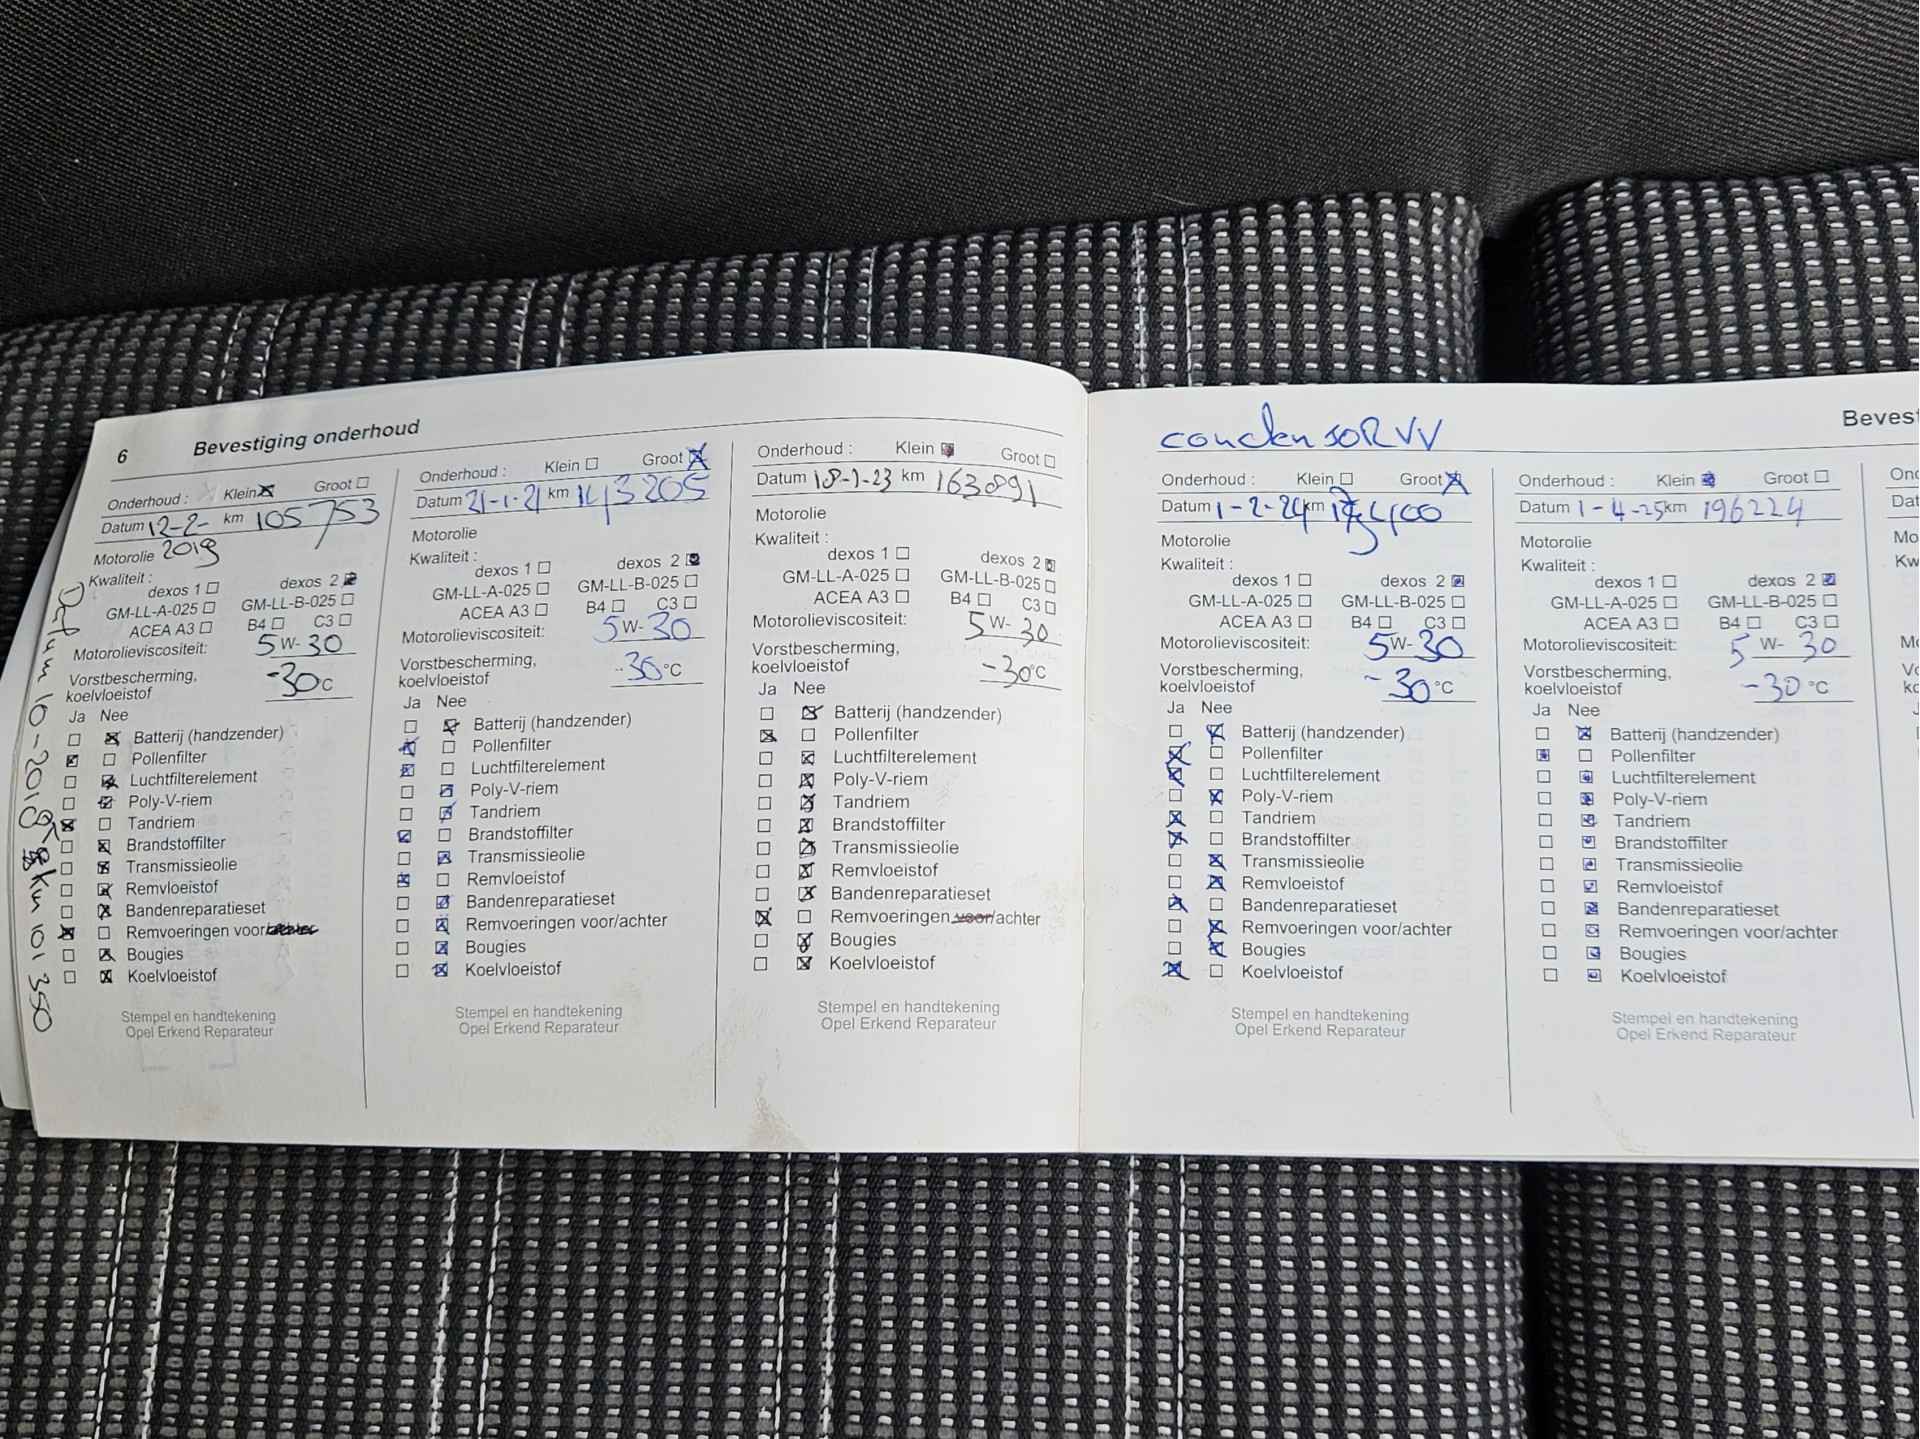 6 Bevestiging onderhoud
Onderhoud : Klein ☒ Groot ☐
Datum 12-2- km 105753
Motorolie 2019
Kwaliteit :
dexos 1 ☐ dexos 2 ☒
GM-LL-A-025 ☐ GM-LL-B-025 ☐
ACEA A3 ☐ B4 ☐ C3 ☐
Motorolieviscositeit: 5 W- 30
Vorstbescherming,
koelvloeistof -30°C
Ja Nee
☐ ☒ Batterij (handzender)
☒ ☐ Pollenfilter
☐ ☒ Luchtfilterelement
☐ ☒ Poly-V-riem
☒ ☐ Tandriem
☐ ☒ Brandstoffilter
☐ ☒ Transmissieolie
☐ ☒ Remvloeistof
☐ ☒ Bandenreparatieset
☒ ☐ Remvoeringen voor/achter
☐ ☒ Bougies
☐ ☒ Koelvloeistof
Stempel en handtekening
Opel Erkend Reparateur
Datum 10-2018
km 101350
Onderhoud : Klein ☐ Groot ☒
Datum 21-1-21 km 143205
Motorolie
Kwaliteit :
dexos 1 ☐ dexos 2 ☒
GM-LL-A-025 ☐ GM-LL-B-025 ☐
ACEA A3 ☐ B4 ☐ C3 ☐
Motorolieviscositeit: 5 W- 30
Vorstbescherming,
koelvloeistof -30°C
Ja Nee
☐ ☒ Batterij (handzender)
☒ ☐ Pollenfilter
☒ ☐ Luchtfilterelement
☐ ☒ Poly-V-riem
☐ ☒ Tandriem
☒ ☐ Brandstoffilter
☐ ☒ Transmissieolie
☒ ☐ Remvloeistof
☐ ☒ Bandenreparatieset
☐ ☒ Remvoeringen voor/achter
☐ ☒ Bougies
☐ ☒ Koelvloeistof
Stempel en handtekening
Opel Erkend Reparateur
Onderhoud : Klein ☒ Groot ☐
Datum 18-1-23 km 163091
Motorolie
Kwaliteit :
dexos 1 ☐ dexos 2 ☒
GM-LL-A-025 ☐ GM-LL-B-025 ☐
ACEA A3 ☐ B4 ☐ C3 ☐
Motorolieviscositeit: 5 W- 30
Vorstbescherming,
koelvloeistof -30°C
Ja Nee
☐ ☒ Batterij (handzender)
☒ ☐ Pollenfilter
☐ ☒ Luchtfilterelement
☐ ☒ Poly-V-riem
☐ ☒ Tandriem
☐ ☒ Brandstoffilter
☐ ☒ Transmissieolie
☐ ☒ Remvloeistof
☐ ☒ Bandenreparatieset
☒ ☐ Remvoeringen voor/achter
☐ ☒ Bougies
☐ ☒ Koelvloeistof
Stempel en handtekening
Opel Erkend Reparateur
condensoR VV
Bevest
Onderhoud : Klein ☐ Groot ☒
Datum 1-2-24 km
Motorolie
Kwaliteit :
dexos 1 ☐ dexos 2 ☒
GM-LL-A-025 ☐ GM-LL-B-025 ☐
ACEA A3 ☐ B4 ☐ C3 ☐
Motorolieviscositeit: 5 W- 30
Vorstbescherming,
koelvloeistof -30°C
Ja Nee
☐ ☒ Batterij (handzender)
☒ ☐ Pollenfilter
☒ ☐ Luchtfilterelement
☐ ☒ Poly-V-riem
☒ ☐ Tandriem
☒ ☐ Brandstoffilter
☐ ☒ Transmissieolie
☐ ☒ Remvloeistof
☒ ☐ Bandenreparatieset
☐ ☒ Remvoeringen voor/achter
☐ ☒ Bougies
☒ ☐ Koelvloeistof
Stempel en handtekening
Opel Erkend Reparateur
Onderhoud : Klein ☒ Groot ☐
Datum 1-4-25 km 196224
Motorolie
Kwaliteit :
dexos 1 ☐ dexos 2 ☒
GM-LL-A-025 ☐ GM-LL-B-025 ☐
ACEA A3 ☐ B4 ☐ C3 ☐
Motorolieviscositeit: 5 W- 30
Vorstbescherming,
koelvloeistof -30°C
Ja Nee
☐ ☒ Batterij (handzender)
☒ ☐ Pollenfilter
☐ ☒ Luchtfilterelement
☐ ☒ Poly-V-riem
☐ ☒ Tandriem
☐ ☒ Brandstoffilter
☐ ☒ Transmissieolie
☐ ☒ Remvloeistof
☐ ☒ Bandenreparatieset
☐ ☒ Remvoeringen voor/achter
☐ ☒ Bougies
☐ ☒ Koelvloeistof
Stempel en handtekening
Opel Erkend Reparateur